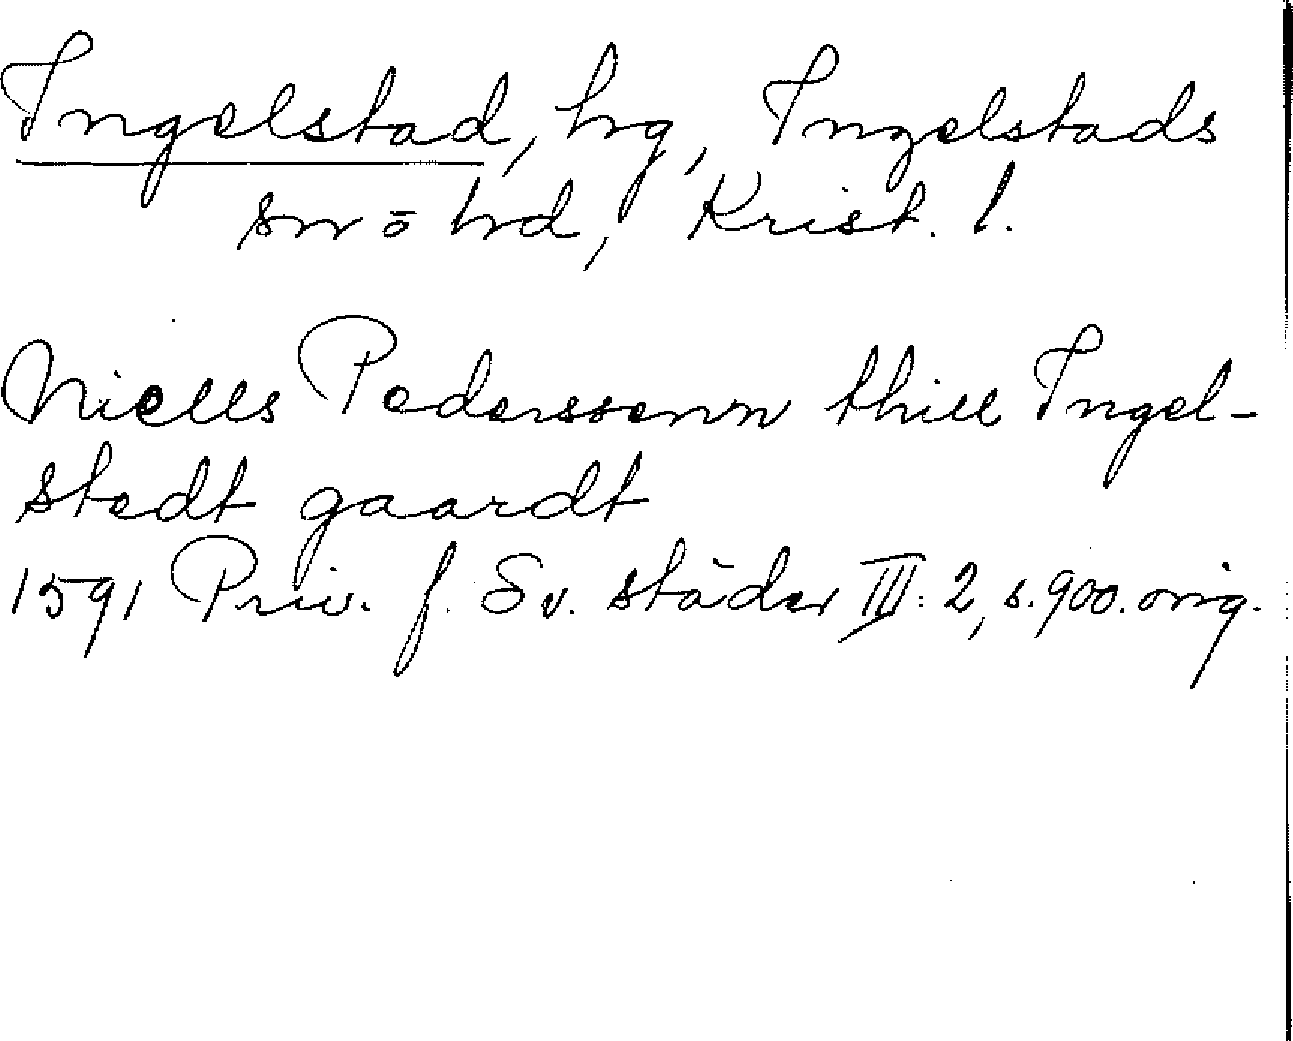 Ingelstad, hg, Ingelstads
sn ō hd, Krist. l.
Niells Pederssenn thill Ingel-
stedt gaardt
1591 Priv. f. Sv. städer III: 2, s. 900. orig.